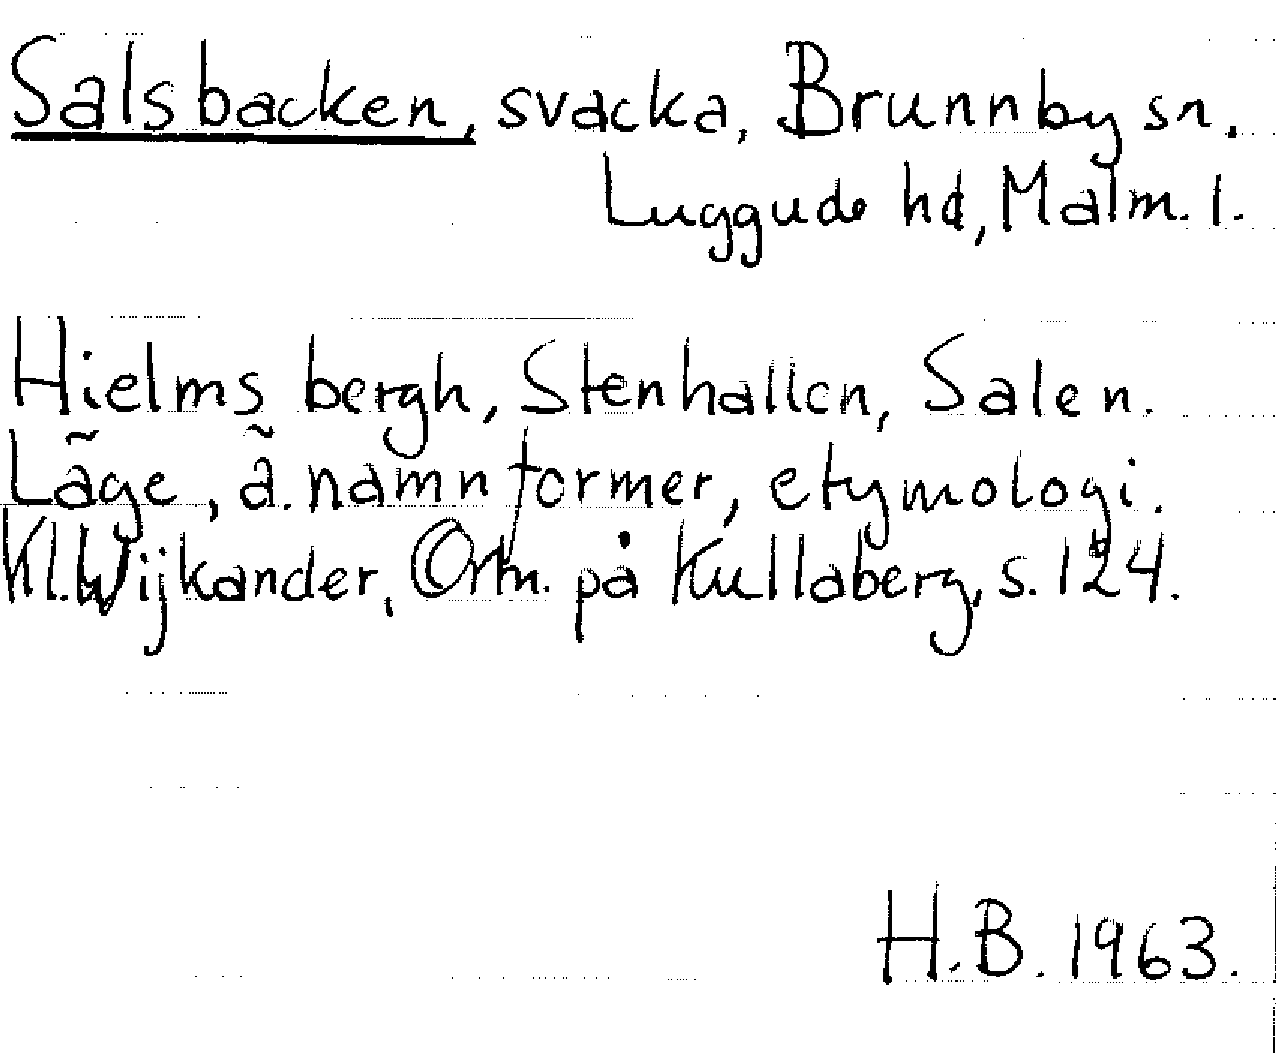 Salsbacken, svacka, Brunnby sn.
Luggude hd, Malm. l.
Hielms bergh, Stenhallen, Salen.
Läge, ä. namnformer, etymologi.
Kl. Wijkander, Ortn. på Kullaberg, s. 124.
H.B. 1963.